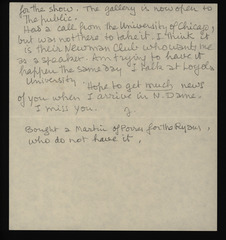 for the show. The gallery is now open to
the public.
Had a call from the University of Chicago,
but was not there to take it. I think it
is their Newman Club who wants me
as a speaker. Am trying to have it
happen the same day I talk at Loyola
University.
Hope to get much news
of you when I arrive in N. Dame.
I miss you.
Bought a Martin of Porres for the Rydens,
who do not have it.